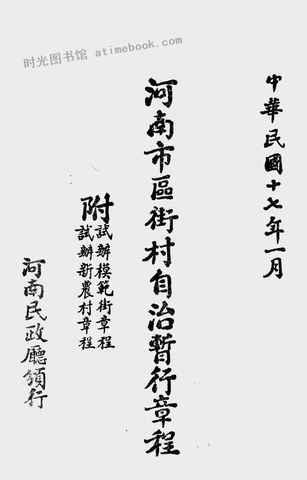 时光图书馆 atimebook.com
中華民國十七年一月
河南市區街村自治暫行章程
附
試辦模範街章程
試辦新農村章程
河南民政廳頒行